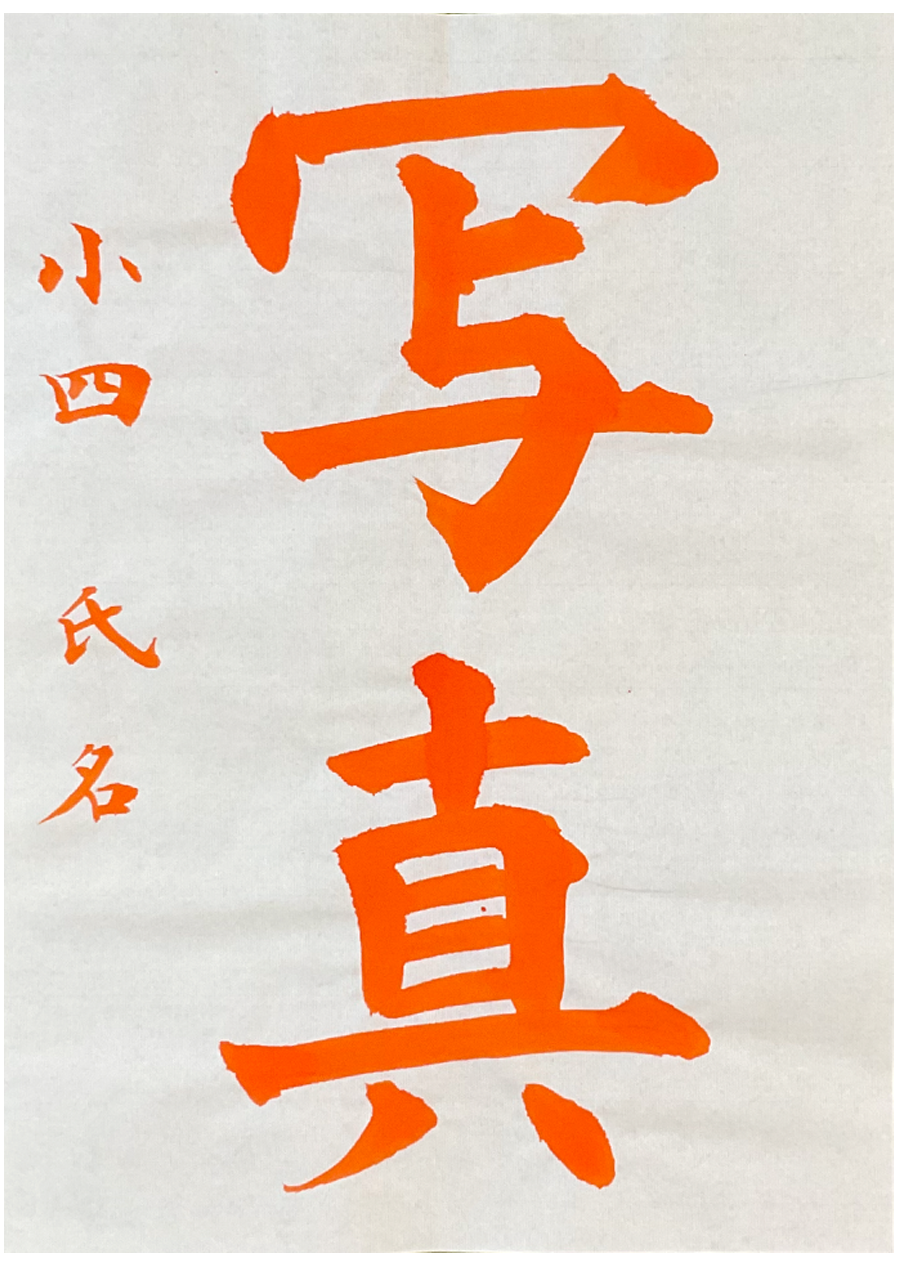 写真
小四 氏名